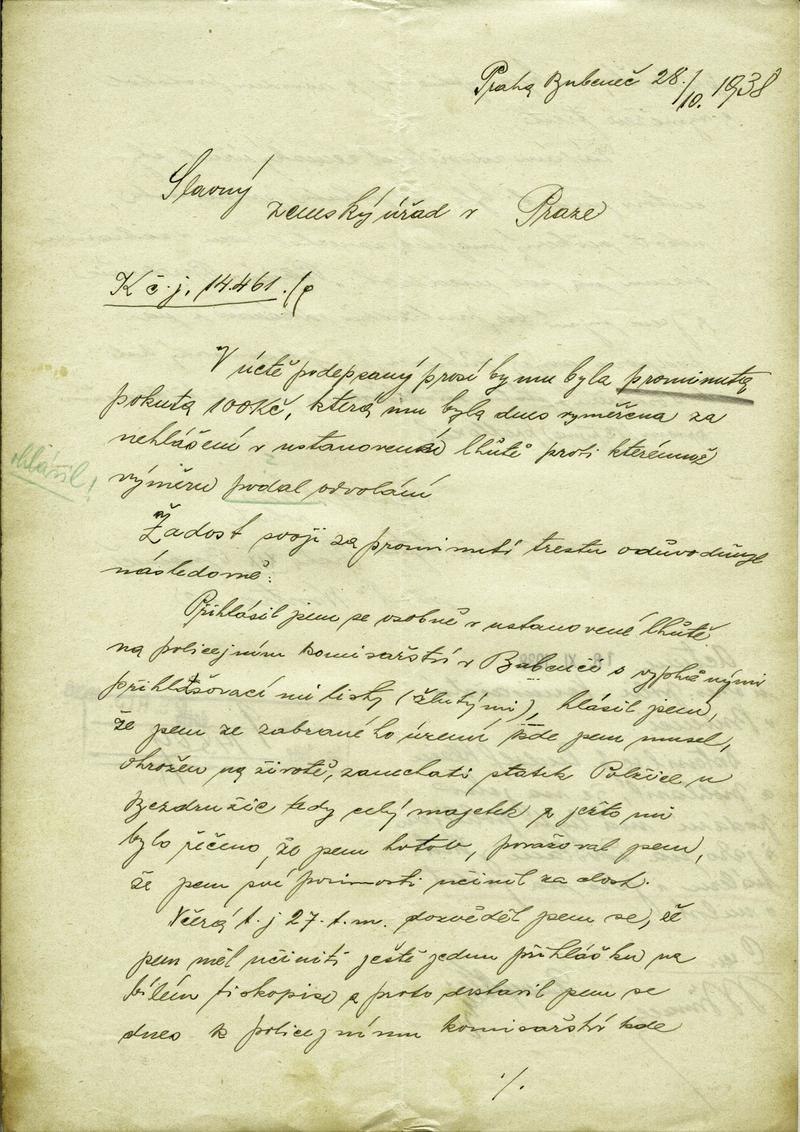 Praha Bubeneč 28./10. 1938
Slavný
zemský úřad v Praze
K č. j. 14.461./
V úctě podepsaný prosí by mu byla prominuta
pokuta 100Kč, která mu byla dnes vyměřena za
nehlášení v ustanovené lhůtě proti kterémuž
ohlásil!
výměru podal odvolání
Žádost svoji za prominutí trestu odůvodňuje
následovně:
Přihlásil jsem se osobně v ustanovené lhůtě
na policejním komisařství v Bubenči s vyplněnými
přihlašovacími listy (žlutými), hlásil jsem,
že jsem ze zabraného území, kde jsem musel,
ohrožen na životě, zanechati statek Polžice u
Bezdružic tedy celý majetek a ježto mi
bylo řečeno, že jsem hotov, považoval jsem,
že jsem své povinnosti učinil za dost.
Včera t. j 27. t. m. dozvěděl jsem se, že
jsem měl učiniti ještě jednu přihlášku na
bílém tiskopise a proto dostavil jsem se
dnes k policejnímu komisařství kde
./.